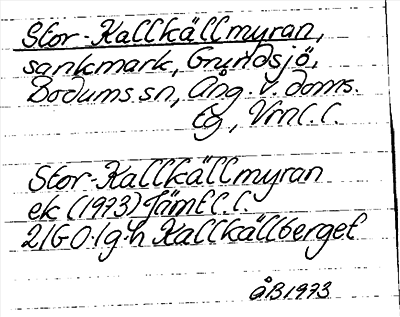 Stor-Kallkällmyran,
sankmark, Grundsjö,
Bodums sn, Ång. v. doms.
tg, Vrnl. l.
Stor-Kallkällmyran
ek (1973) Jämtl. l.
21G 0-1g-h Kallkällberget
ÅB 1973